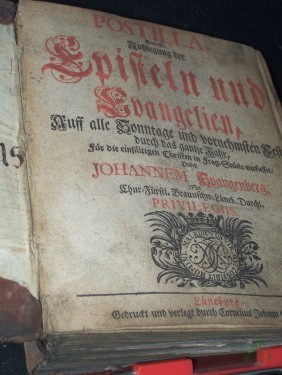 POSTILLA,
Außlegung der
Episteln und
Evangelien,
Auff alle Sonntage und vornehmsten Fest
durch das gantze Jahr,
Für die einfältigen Christen in Frag-Stücke verfasset/
Durch
JOHANNEM Spangenberg.
Mit
Chur-Fürstl. Braunschw. Lüneb. Durchl.
PRIVILEGIIS.
Lüneburg,
Gedruckt und verlegt durch Cornelius Johann